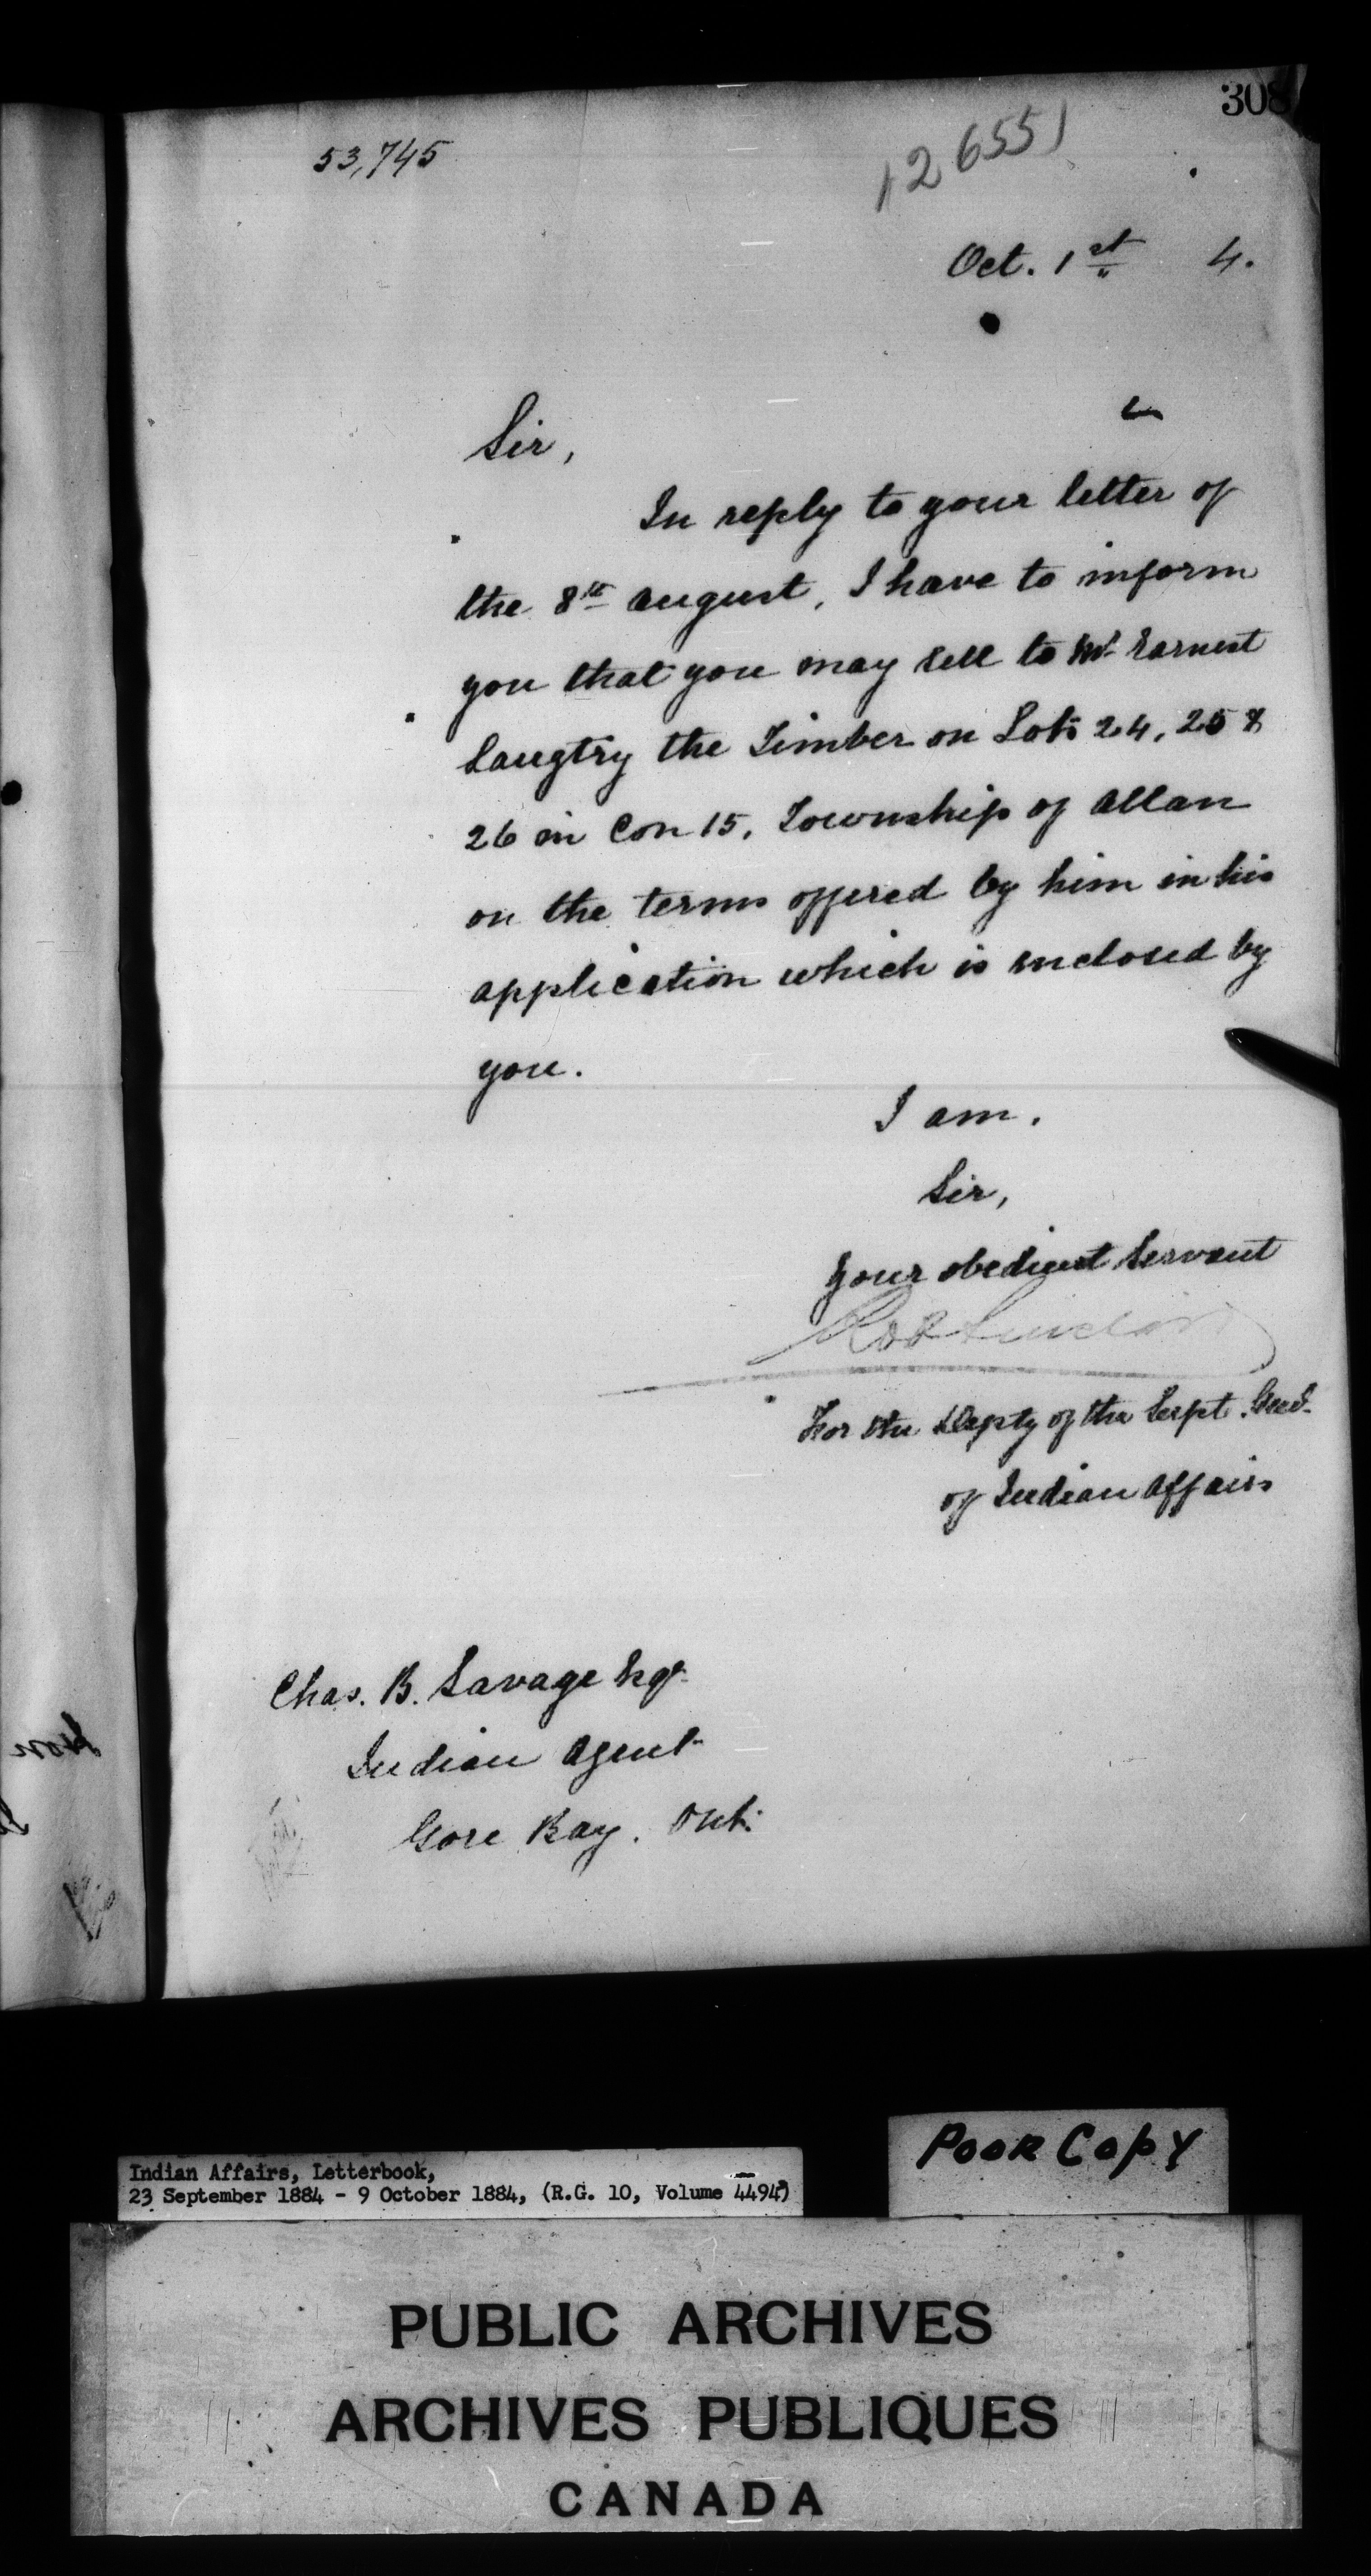 308
53,745
12 655
Oct. 1st 4.
Sir,
In reply to your letter of
the 8th August, I have to inform
you that you may sell to Mr Earnest
Langtry the Timber on Lots 24, 25 &
26 in Con 15, Township of Allan
on the terms offered by him in his
application which is inclosed by
you.
I am,
Sir,
Your obedient Servant
Rob Sinclair
For the Depty of the Supt. Genl.
of Indian Affairs
Chas. B. Savage Esqr.
Indian Agent
Gore Bay. Ont.
Poor Copy
Indian Affairs, Letterbook,
23 September 1884 - 9 October 1884, (R.G. 10, Volume 4494)
PUBLIC ARCHIVES
ARCHIVES PUBLIQUES
CANADA